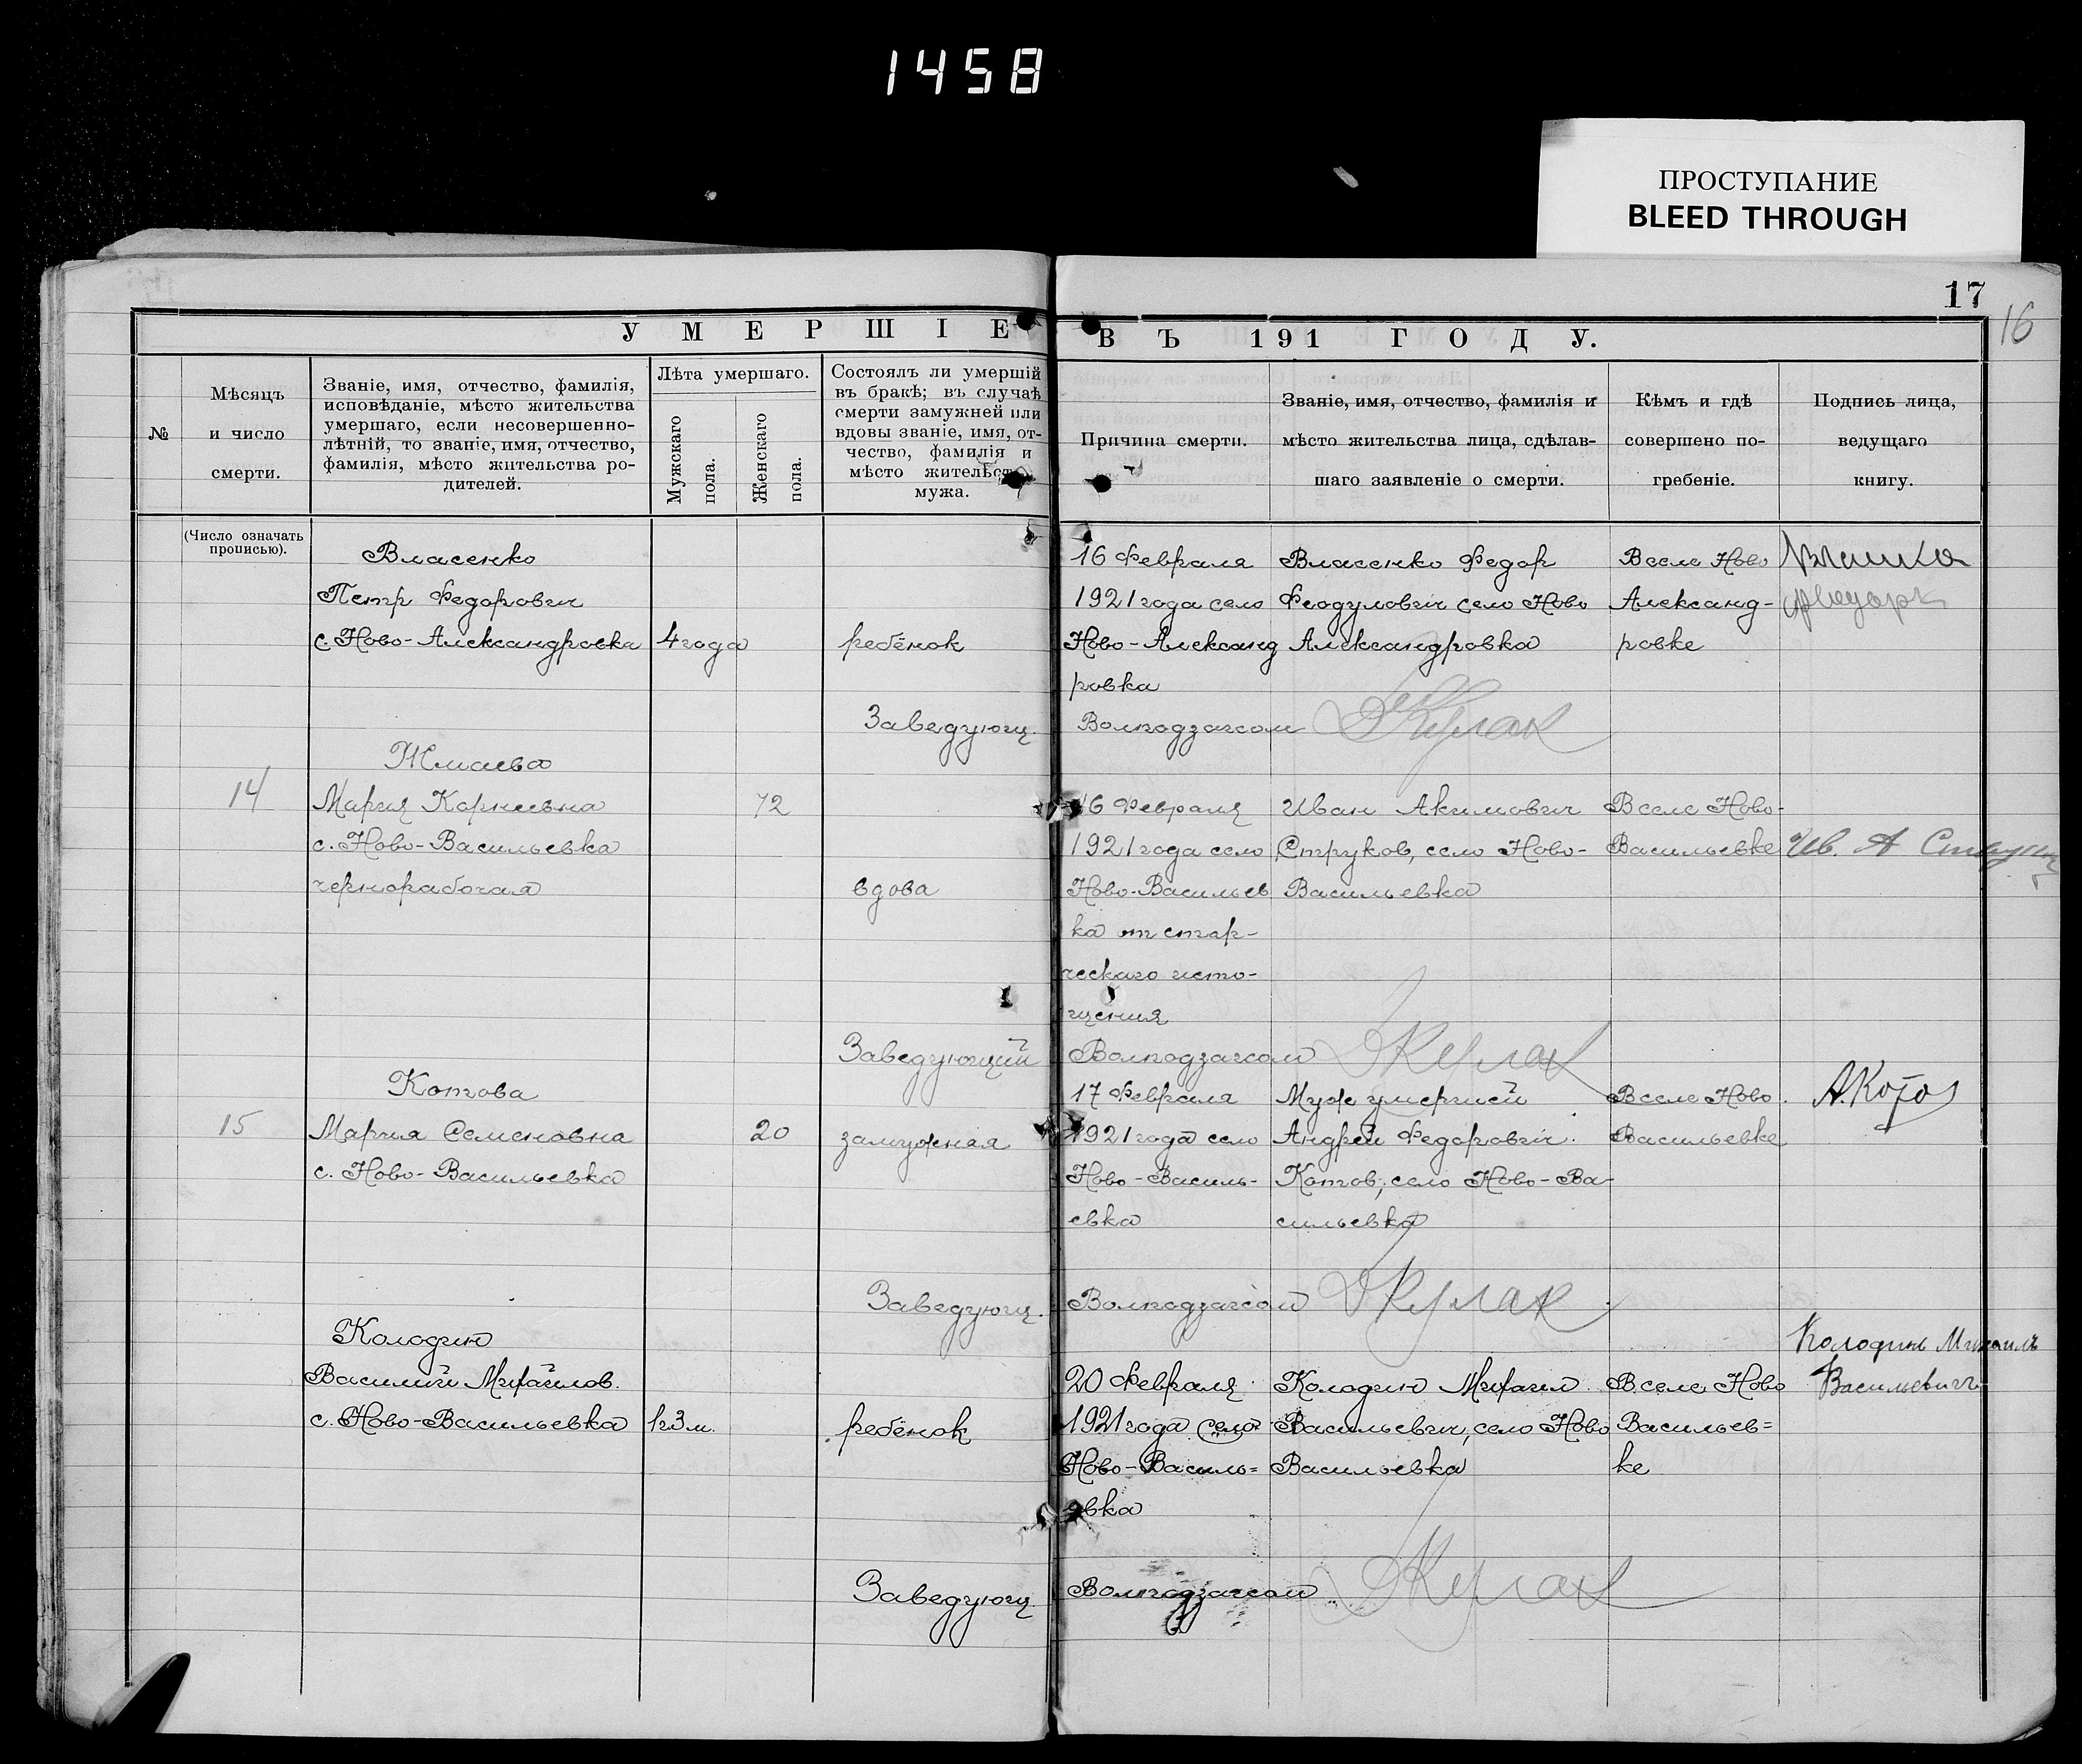 1458
ПРОСТУПАНИЕ
BLEED THROUGH
17
16
УМЕРШІЕ
ВЪ 191 ГОДУ.
№
Мѣсяцъ
и число
смерти.
Званіе, имя, отчество, фамилія,
исповѣданіе, мѣсто жительства
умершаго, если несовершенно-
лѣтній, то званіе, имя, отчество,
фамилія, мѣсто жительства ро-
дителей.
Лѣта умершаго.
Мужскаго
пола.
Женскаго
пола.
Состоялъ ли умершій
въ бракѣ; въ случаѣ
смерти замужней или
вдовы званіе, имя, от-
чество, фамилія и
мѣсто жительства
мужа.
Причина смерти.
Званіе, имя, отчество, фамилія и
мѣсто жительства лица, сдѣлав-
шаго заявленіе о смерти.
Кѣмъ и гдѣ
совершено по-
гребеніе.
Подпись лица,
ведущаго
книгу.
(Число означать
прописью).
Власенко
Петр Федорович
с. Ново-Александровка
4 года
ребёнок
16 Февраля
1921 года село
Ново-Александ
ровка
Власенко Федор
Феодулович село Ново
Александровка
В селе Ново
Александ-
ровке
Заведующ. Волподзагсом
Кулак
14
Мария Корнеевна
с. Ново-Васильевка
чернорабочая
72
вдова
16 Февраля
1921 года село
Ново-Васильев
ка от стар-
ческаго исто-
щения
Иван Акимович
Струков, село Ново-
Васильевка
В селе Ново-
Васильевке
Ив. А
Заведующий Волподзагсом
Кулак
Котова
15
Мария Семеновна
с. Ново-Васильевка
20
замужная
17 Февраля
1921 года село
Ново-Василь-
евка
Муж умершей
Андрей Федорович
Котов, село Ново-Ва-
сильевка
В селе Ново
Васильевке
А. Котов
Заведующ. Волподзагсом
Кулак
Колодин
Василий Михайлов.
с. Ново-Васильевка
1г 3 м.
ребёнок
20 Февраля
1921 года село
Ново-Василь=
евка
Колодин Михаил
Васильевич, село Ново
Васильевка
В селе Ново
Васильев=
ке
Колодинъ Михаилъ
Васильевичъ
Заведующ. Волподзагсом
Кулак